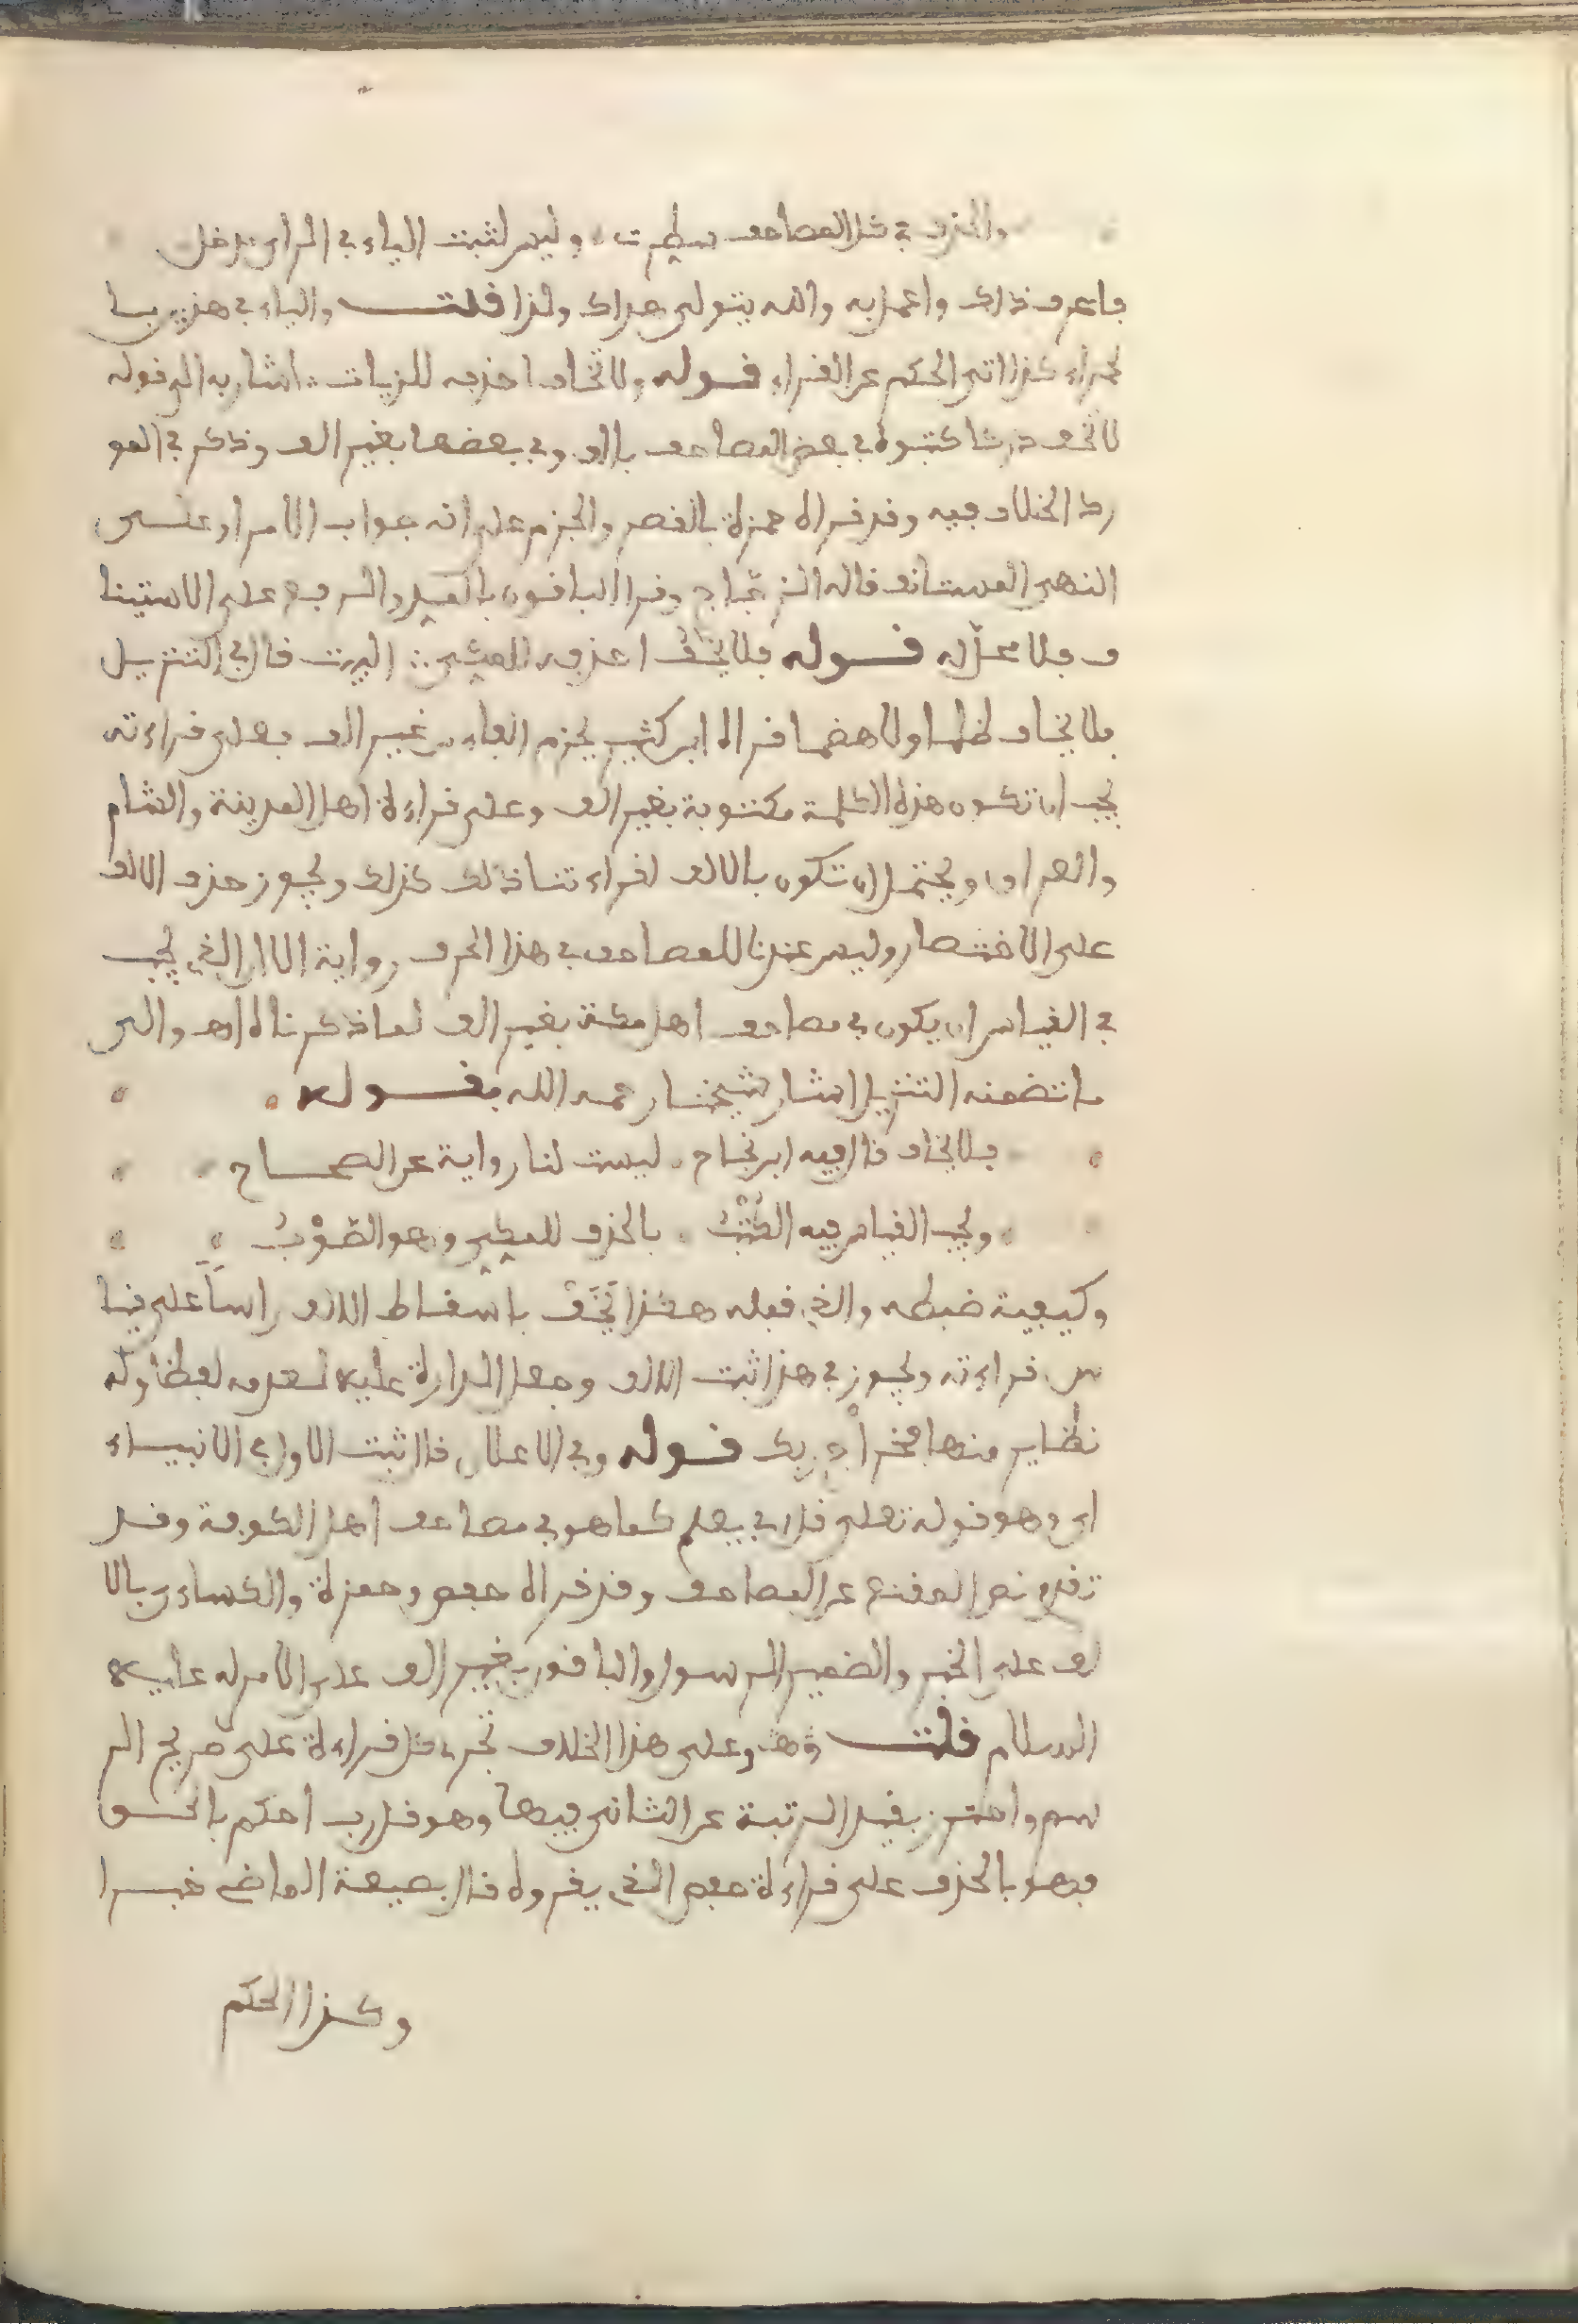 والحذف في كل المصاحف سطرت . وليس لثبت الياء في الراى مدخل
فاعرف ذلك واعمل به والله يتولى هداك ولذا قلت والياء في هذين با
لحراء كذا اتى الحكم عن القراء قوله ولا تخاف احذفه للزيات . اشار به الى قوله
لا تخف دركا كتبوه في بعض المصاحف بالف وفي بعضها بغير الف وذكر في المو
رد الخلاف فيه وقد قراه حمزة بالقصر والجزم على انه جواب الامر او على
النهى المستانف قاله الزجاج وقرا الباقون بالمد والرفع على الاستينا
ف فلا محل له قوله فلا يخف احذف للمكى : البيت قال في التنزيل
فلا يخاف ظلما ولا هضما قراه ابن كثير بجزم الفاء من غير الف فعلى قراءته
يجب ان تكون هذه الكلمة مكتوبة بغير الف وعلى قراءة اهل المدينة والشام
والعراق ويحتمل ان تكون بالالف لقراءتنا ذلك كذلك ويجوز حذف الالف
على الاختصار وليس عندنا للمصاحف في هذا الحرف رواية الا ان الذي يجب
في القياس ان يكون في مصاحف اهل مكة بغير الف لما ذكرناه اهـ والى
ما تضمنه التنزيل اشار شيخنا رحمه الله بقوله
فلا يخاف قال فيه ابن نجاح . ليست لنا رواية عن الصحاح
ويجب القياس فيه الكتب . بالحذف للمكى وهو الصوب
وكيفية ضبطه والذي قبله هكذا تخف باسقاط الالف راسا على قيا
س قراءته ويجوز في هذا ثبت الالف وجعل الدارة عليه لعدمه لفظا وله
نظاير منها قوله وفي الاعلال قال اثبت الاول في الانبياء
اى وهو قوله تعلى قل ربي يعلم كما هو في مصاحف اهل الكوفة وقد
تقدم نص المقنع عن المصاحف وقد قراه حفص وحمزة والكساءى بالا
لف على الخبر والضمير للرسول والباقون بغير الف على الامر له عليه
السلام قلت وعلى هذا الخلاف تجرى كل قراءة على صريح الر
سم واحترز بقيد الرتبة عن الثانى فيها وهو قل رب احكم بالحق
فهو بالحذف على قراءة حفص الذي يقروه قال بصيغة الماضى خبرا
وكذا الحكم